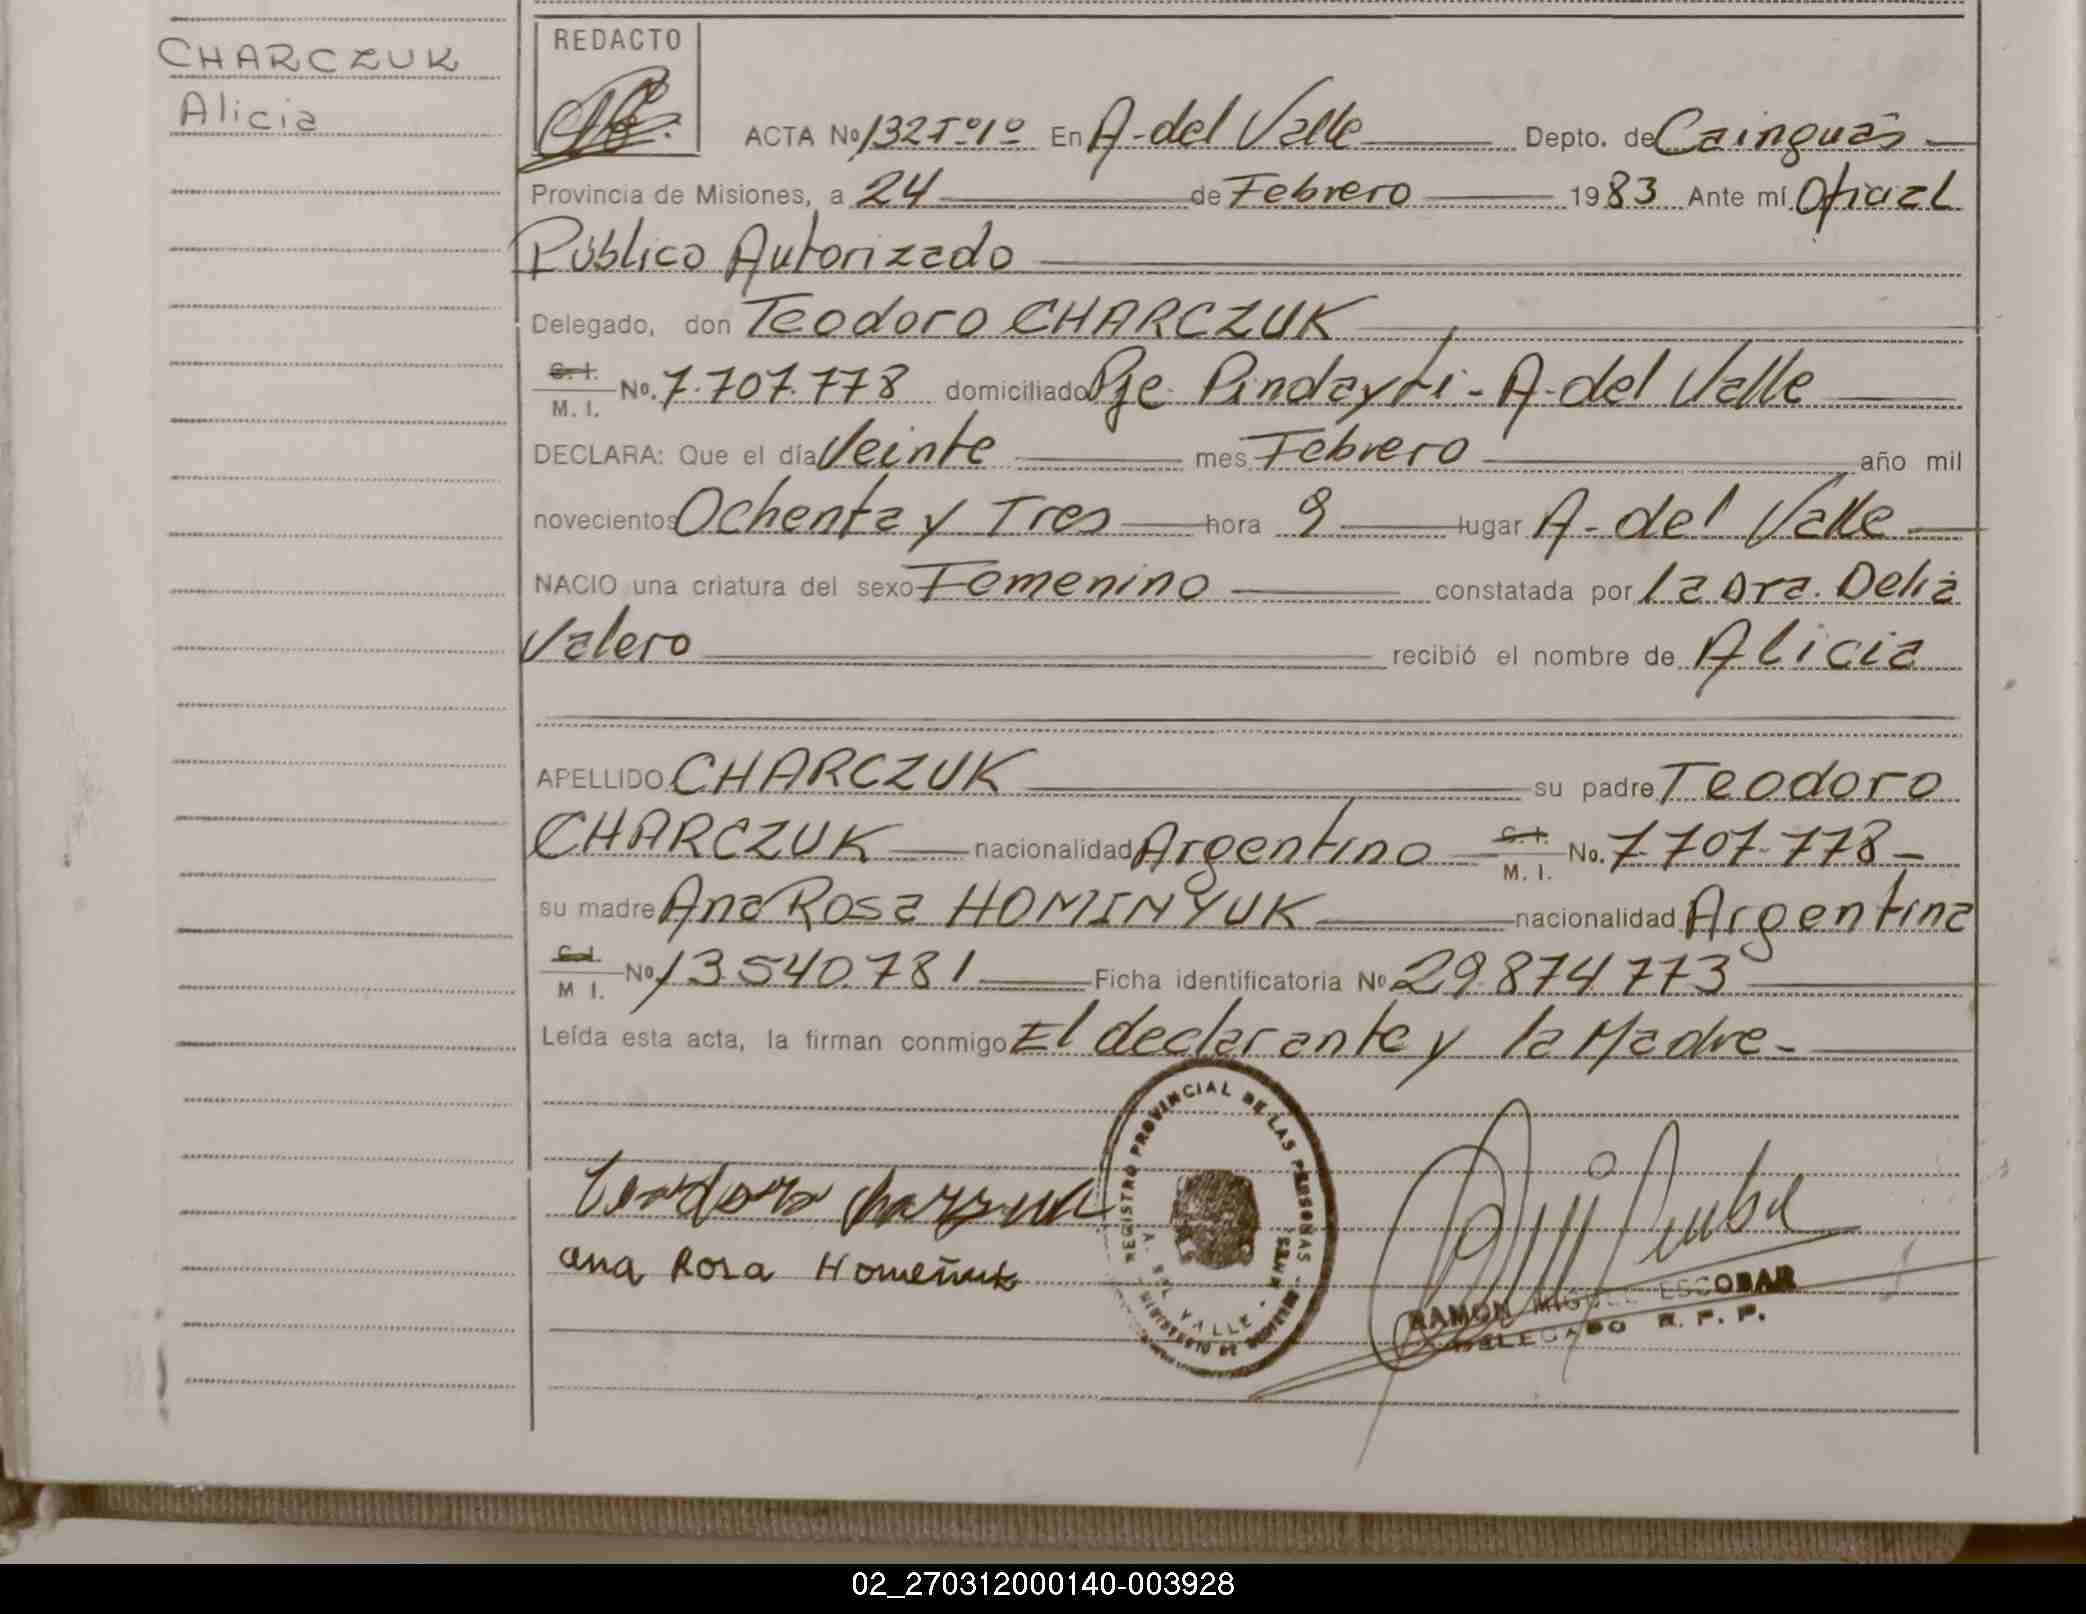 CHARCZUK
Alicia
REDACTO
ACTA No 132 Tº1º En A. del Valle Depto. de Cainguas
Provincia de Misiones, a 24 de Febrero 1983 Ante mí Oficial
Público Autorizado
Delegado, don Teodoro CHARCZUK
C. I. M. I. No. 7.707.778 domiciliado Pje Pindayti - A. del Valle
DECLARA: Que el día Veinte mes Febrero año mil
novecientos Ochenta y Tres hora 9 lugar A. del Valle
NACIO una criatura del sexo Femenino constatada por la Dra. Delia
Valero recibió el nombre de Alicia
APELLIDO CHARCZUK su padre Teodoro
CHARCZUK nacionalidad Argentino C. I. M. I. No. 7.707.778-
su madre Ana Rosa HOMINYUK nacionalidad Argentina
C. I. M I. No 13.540.781 Ficha identificatoria No 29.874.773
Leída esta acta, la firman conmigo El declarante y la Madre.-
REGISTRO PROVINCIAL DE LAS PERSONAS
A. DEL VALLE
Teodoro
ana Rosa Homeñuk
RAMON MIGUEL ESCOBAR
DELEGADO R. P. P.
02_270312000140-003928